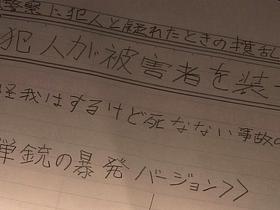 警察に犯人と疑れたときの攪乱
犯人が被害者を装
怪我はするけど死なない事故の
弾銃の暴発バージョン>>